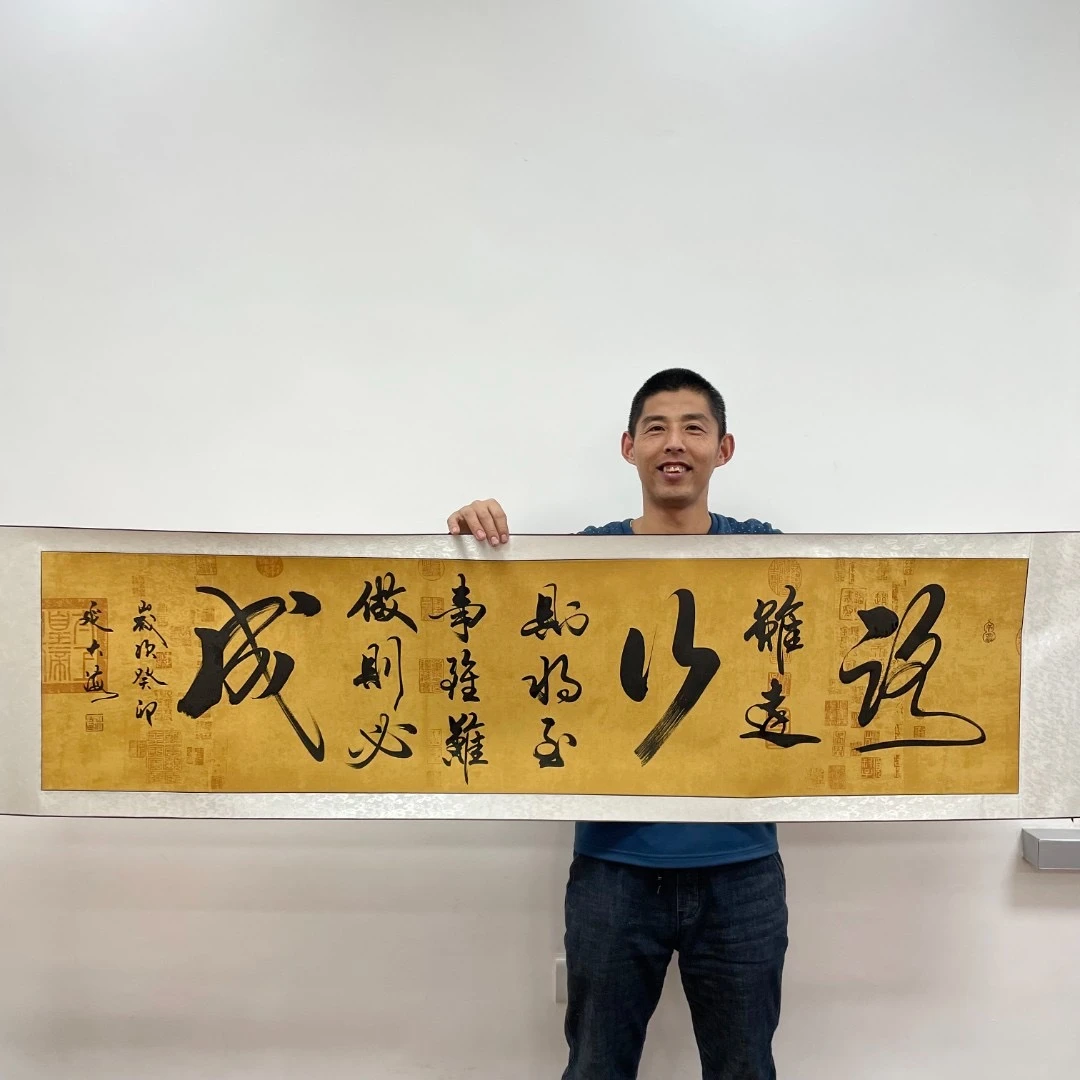 路
雖遠
行
則將至
事雖難
做則必
成
歲次癸卯
大海